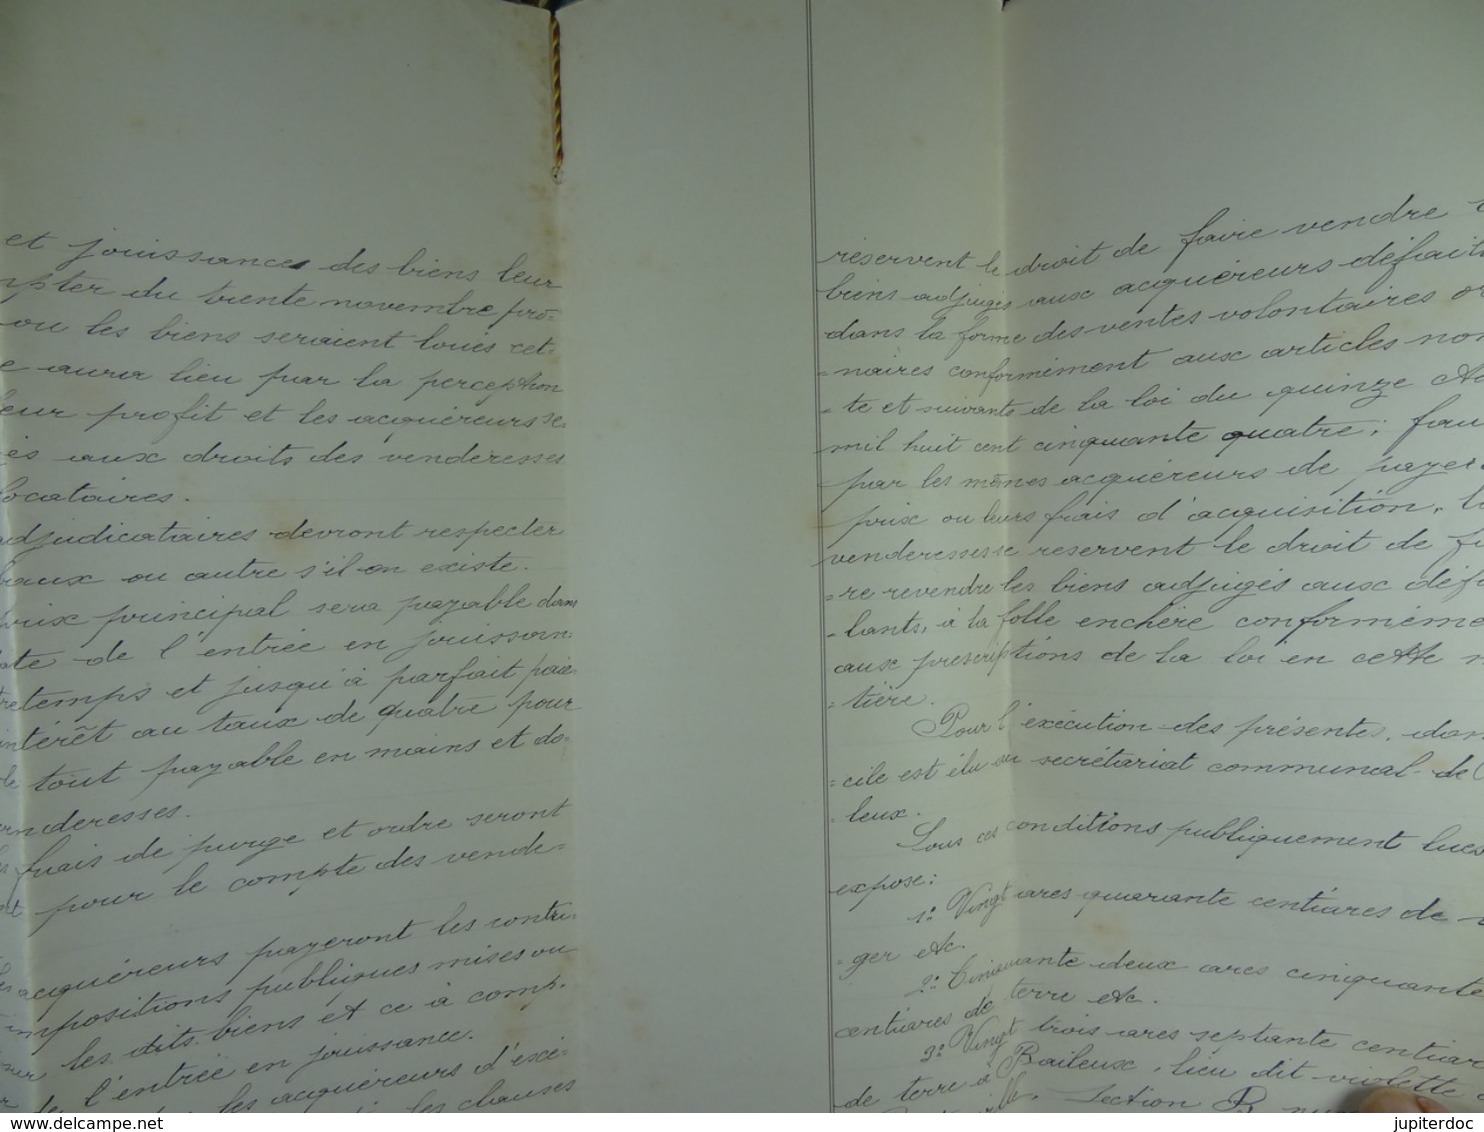 et jouissances des biens leur
mpter du trente novembre pro=
ou les biens seraient loués cet=
e aura lieu par la perception
leur profit et les acquéreurs se=
és aux droits des venderesses
locataires.
adjudicataires devront respecter
baux ou autre s'il en existe.
prix principal sera payable dans
ate de l'entrée en jouissan=
retemps et jusqu'à parfait paie=
intérêt au taux de quatre pour
le tout payable en mains et do=
enderesses.
frais de purge et ordre seront
pour le compte des vende=
acquéreurs payeront les contri=
impositions publiques mises ou
les dits biens et ce à comp=
de l'entrée en jouissance.
les acquéreurs d'exé=
les clauses
réservent le droit de faire vendre
biens adjugés aux acquéreurs défail
dans la forme des ventes volontaires or
=naires conformément aux articles non
=te et suivants de la loi du quinze Ao
mil huit cent cinquante quatre; fau
par les mêmes acquéreurs de payer
prix ou leurs frais d'acquisition, l
venderesses se réservent le droit de fa
=re revendre les biens adjugés aux défa
=lants, à la folle enchère conforméme
aux prescriptions de la loi en cette m
=tière.
Pour l'exécution des présentes, dom
=cile est élu au secrétariat communal de
=leux.
Sous ces conditions publiquement lues
expose:
1° Vingt ares quarante centiares de v
=ger etc.
2° Cinquante deux ares cinquante
centiares de terre etc.
3° Vingt trois ares septante centiar
de terre à Baileux, lieu dit violette
Section B
www.delcampe.net
jupiterdoc